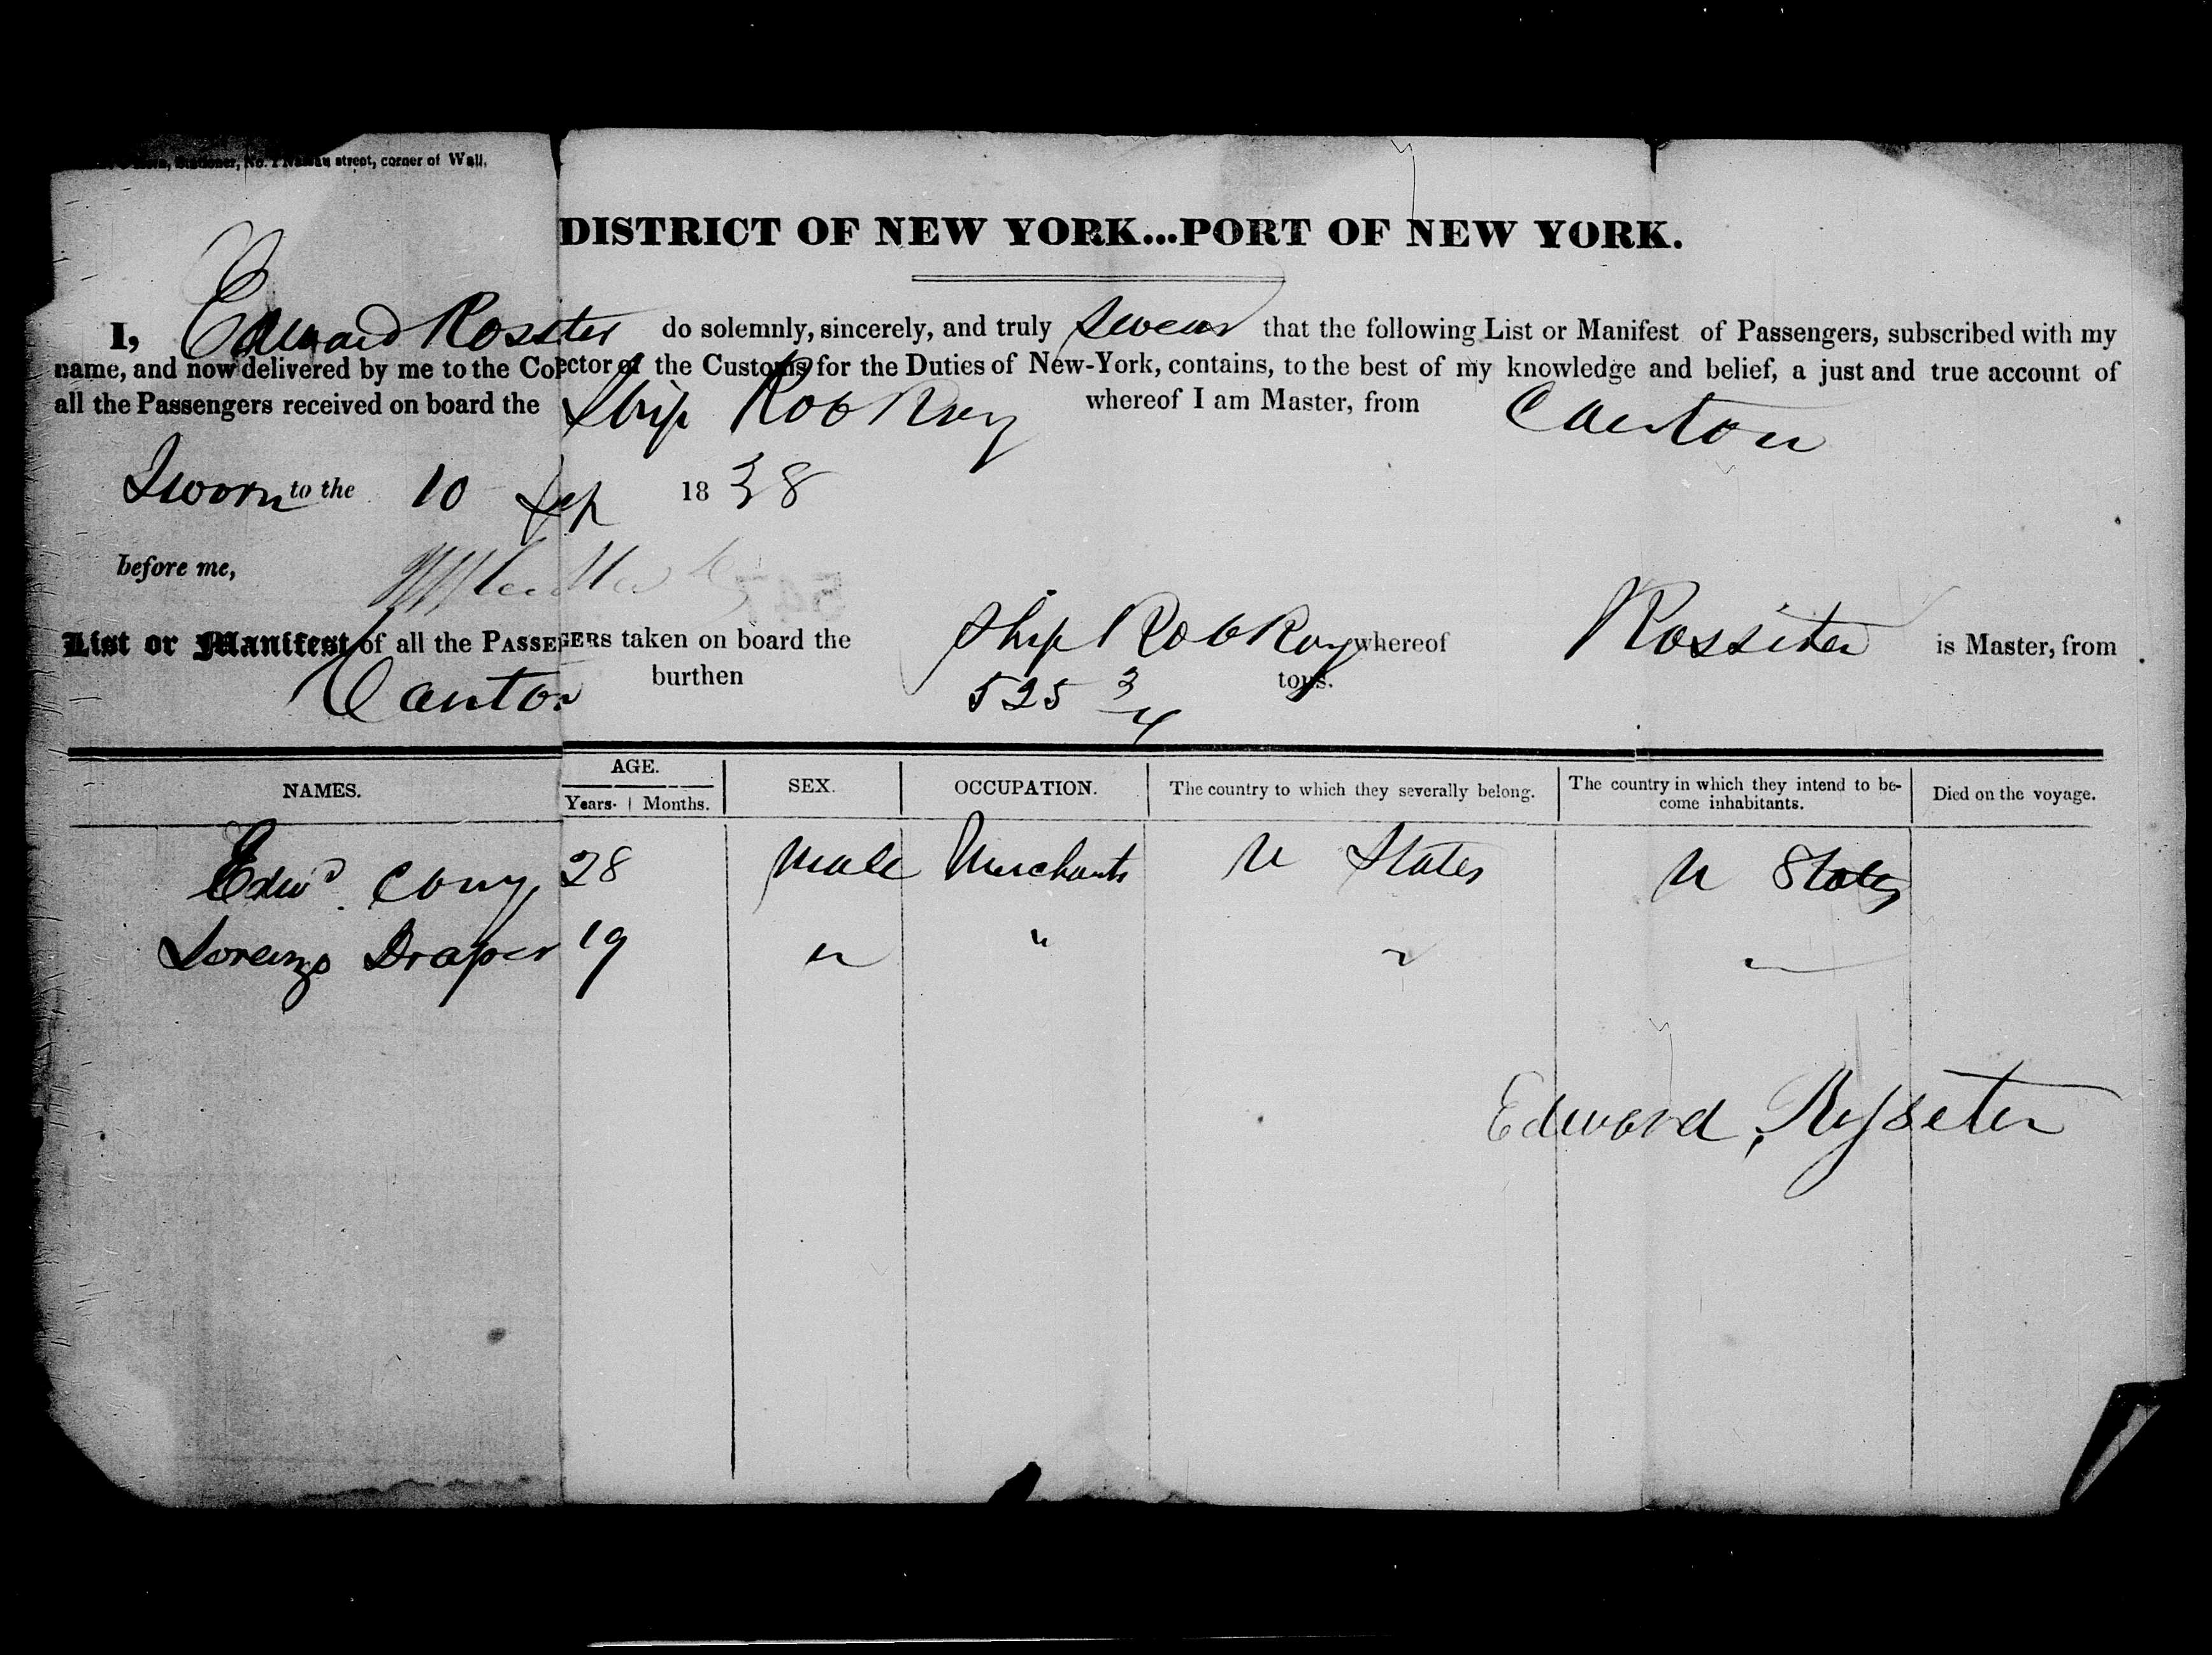 Stationer, No. 1 Nassau street, corner of Wall,
DISTRICT OF NEW YORK...PORT OF NEW YORK.
I, Edward Rossiter do solemnly, sincerely, and truly swear that the following List or Manifest of Passengers, subscribed with my
name, and now delivered by me to the Collector of the Customs for the Duties of New-York, contains, to the best of my knowledge and belief, a just and true account of
all the Passengers received on board the Ship Rob Roy whereof I am Master, from Canton
Sworn to the 10 Sep 1838
before me,
List or Manifest of all the PASSENGERS taken on board the Ship Rob Roy whereof Rossiter is Master, from
Canton burthen 525 3/4 tons.
NAMES. AGE. SEX. OCCUPATION. The country to which they severally belong. The country in which they intend to be-come inhabitants. Died on the voyage.
Years. Months.
Edwd. Cony 28 Male Merchants U States U States
Lorenzo Draper 19 " " " "
Edward Rosseter